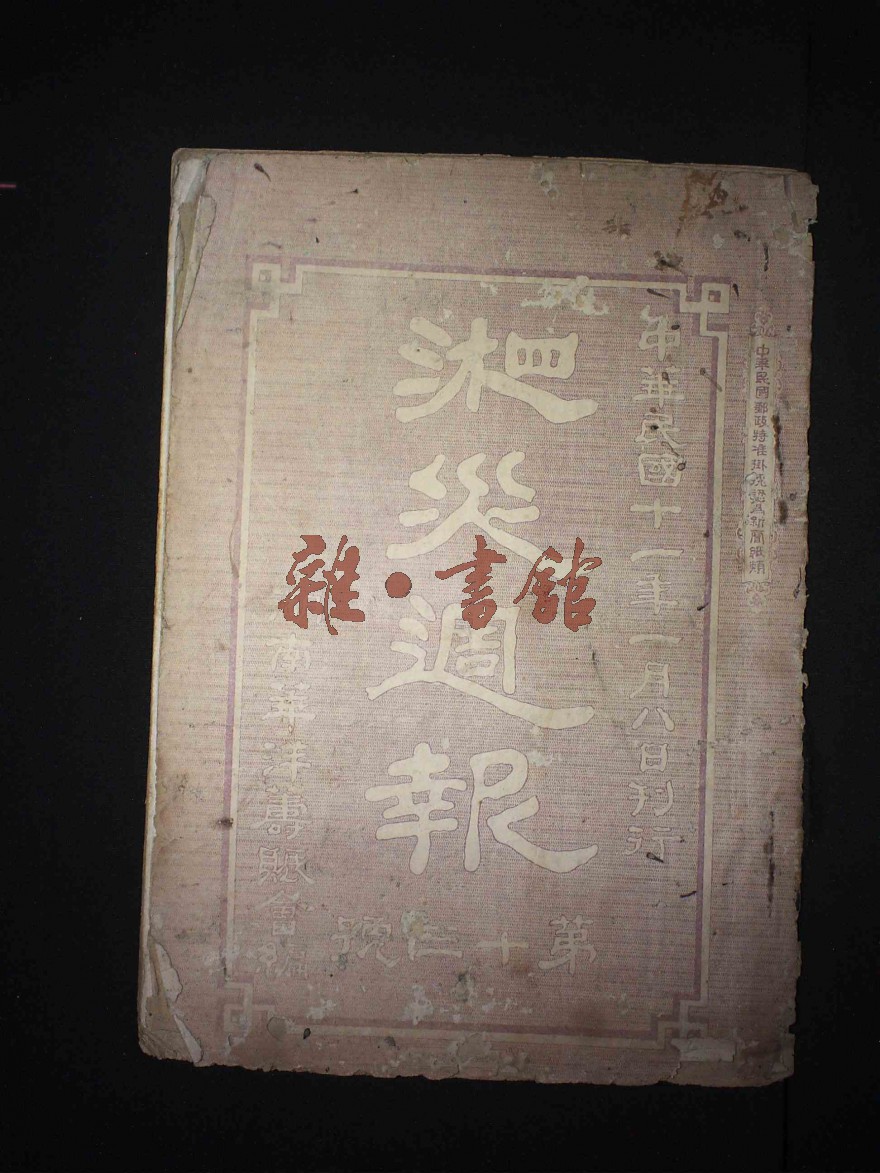 中華民國郵政特准掛號認爲新聞紙類
中華民國十一年一月八日刊行
湘災週報
第十三號
南華洋籌賑會編
雜·書館